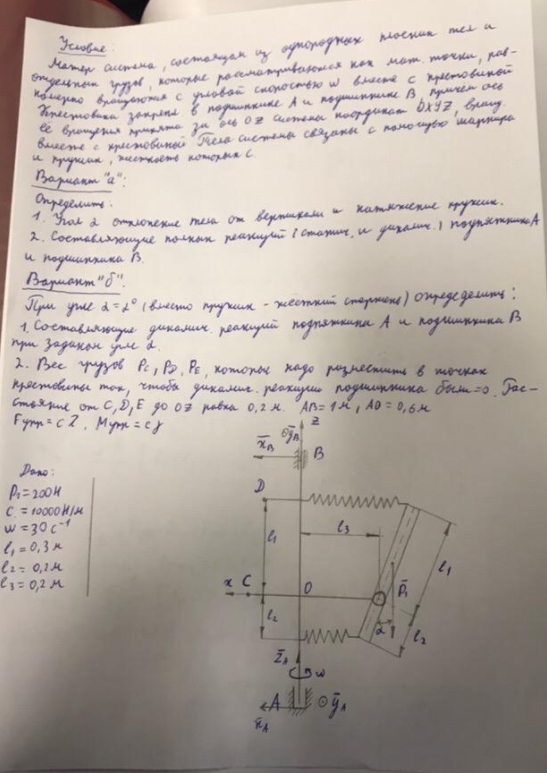 Условие:
Матер система, состоящая из однородных плоских тел и
отдельных грузов, которые рассматриваются как мат. точки, рав-
номерно вращающаяся с угловой скоростью ω вместе с крестовиной
Крестовина закреплена в подпятнике А и подшипнике В, причем ось
её вращения принята за ось OZ система координат OXYZ, вращ.
вместе с крестовиной Тела системы связаны с помощью шарнира
и пружин, жесткость которых с.
Вариант "а":
Определить:
1. Угол α отклонение тела от вертикали и натяжение пружин.
2. Составляющие полных реакций (статич. и динамич.) подпятника А
и подшипника В.
Вариант "б":
При угле α=2° (вместо пружин - жёсткий стержень) определить:
1. Составляющие динамич. реакций подпятника А и подшипника В
при заданном угле α.
2. Вес грузов Pc, PD, PE, которые надо разместить в точках
крестовины так, чтобы динамич. реакции подшипника были =0. Рас-
стояние от C, D, E до OZ равна 0,2м. AB=1м, AO=0,6м
Fупр=cλ, Mупр=cγ
Дано:
P1=200Н
C=10000Н/м
ω=30 c⁻¹
l1=0,3м
l2=0,2м
l3=0,2м
z
ȳB
x̄B
B
D
l1
l3
l1
x C O P̄1
l2
α
l2
Z̄A
ω
A
ȳA
x̄A